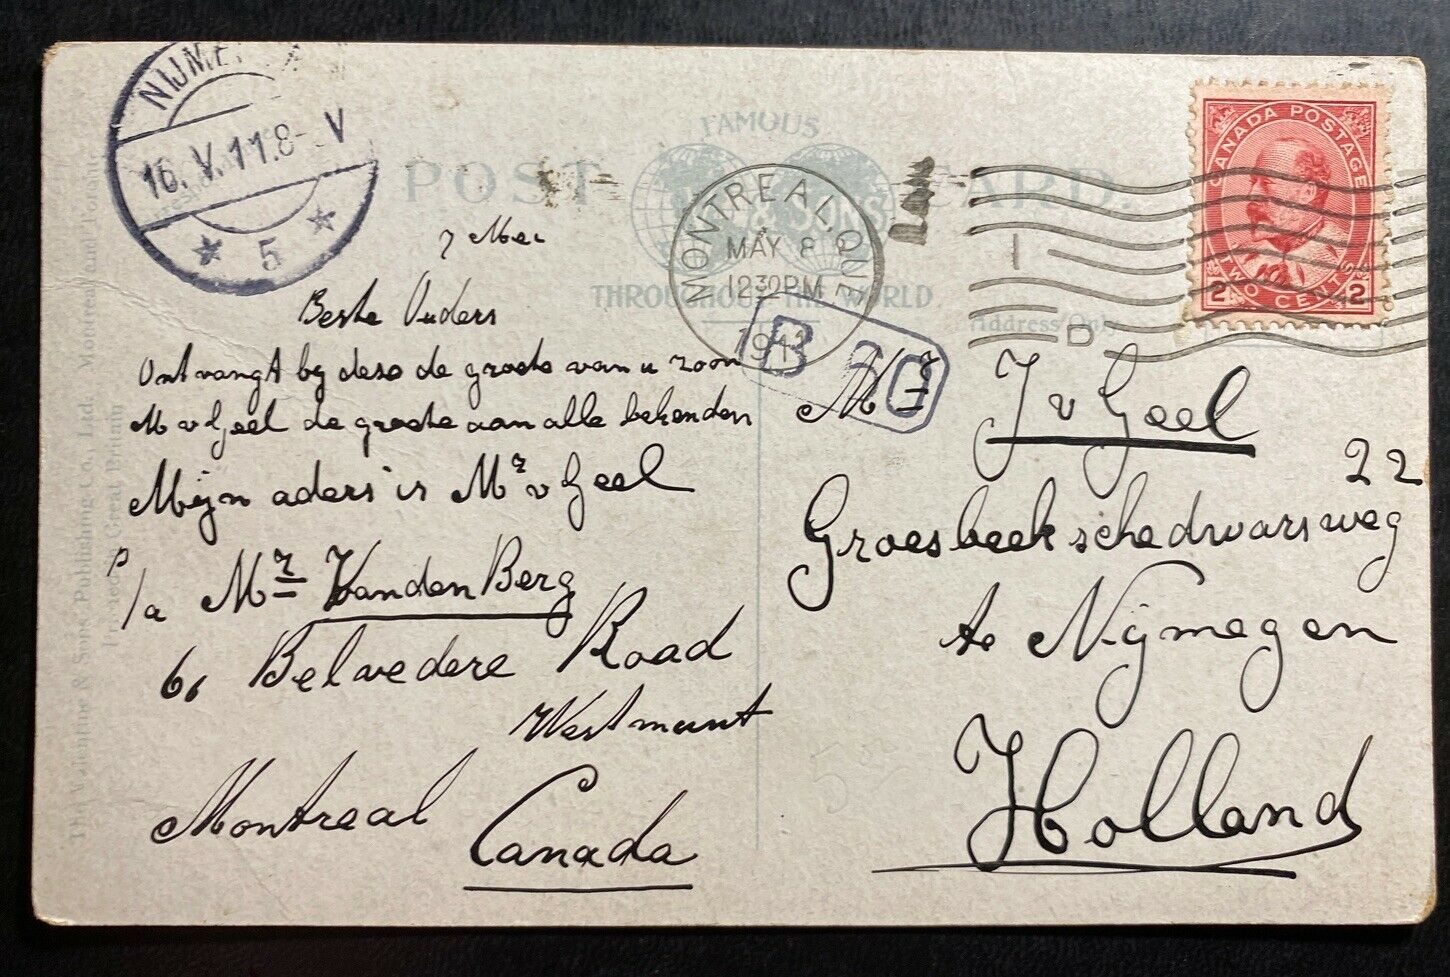 NIJME
16.V.11.8- V
* 5 *
POST CARD.
FAMOUS
& SONS
THROUGHOUT THE WORLD
Address Only
MONTREAL, QUE
MAY 8
12 30 PM
1911
I
D
CANADA POSTAGE
2 TWO CENTS 2
B
7 Mei
Beste Ouders
Ontvangt by dese de groete van u zoon
M v Geel de groete aan alle bekenden
Mijn aders is Mr v Geel
P/a Mr Van den Berg
61 Belvedere Road
Westmount
Montreal
Canada
Mr J v Geel
22
Groesbeekschedwarsweg
te Nijmegen
Holland
The Valentine & Sons Publishing Co., Ltd. Montreal and Toronto
Printed in Great Britain